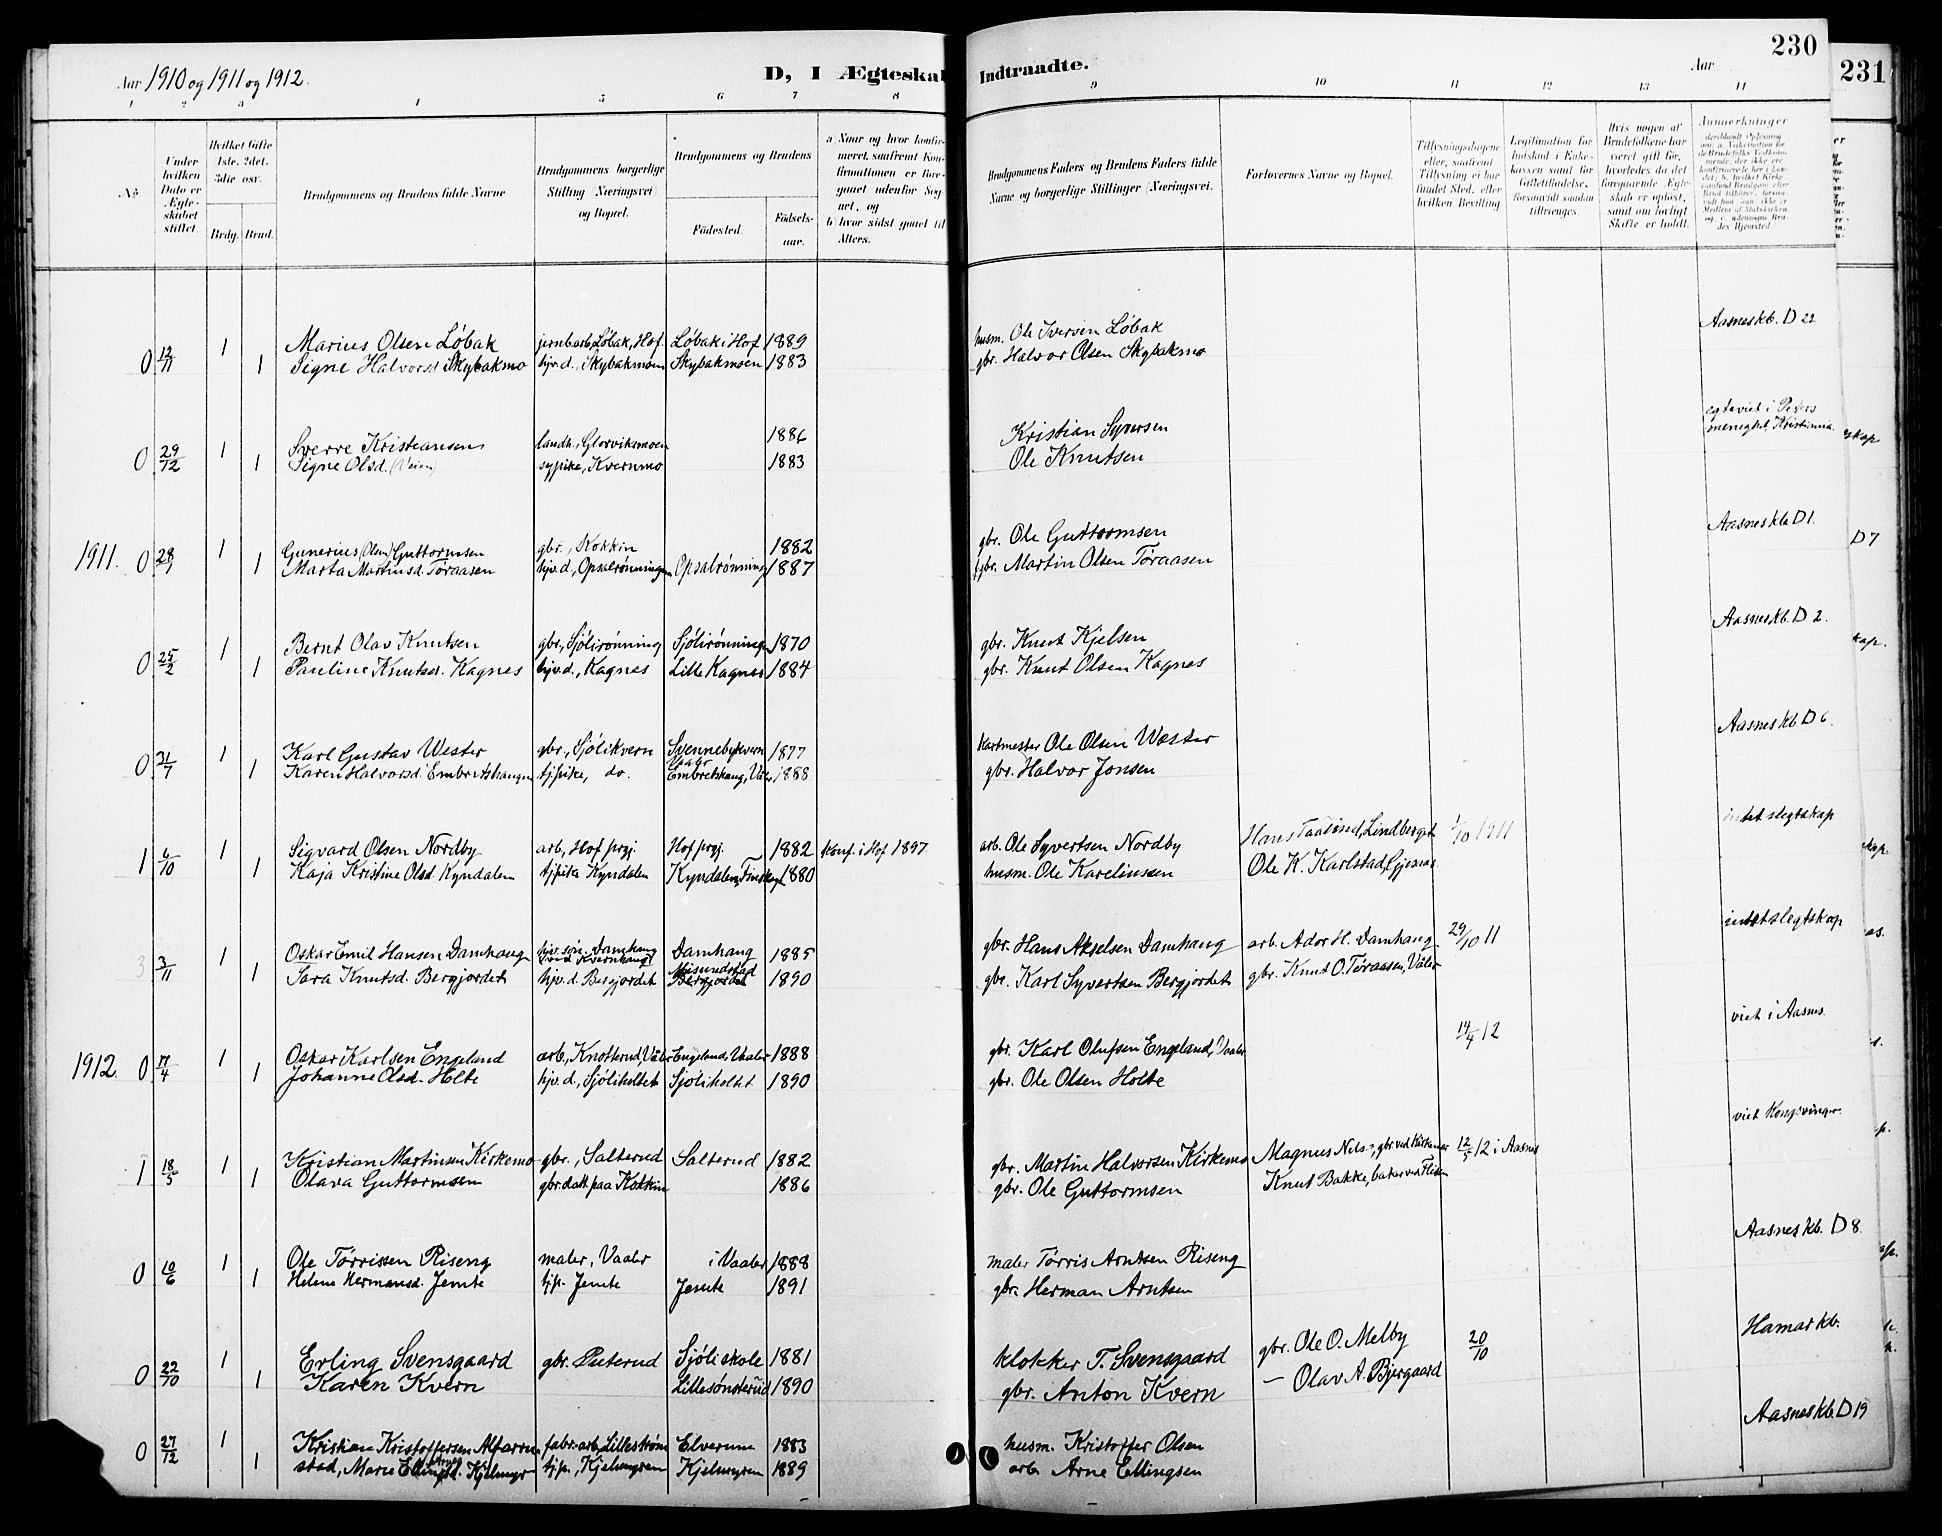 Aar 1910 og 1911 og 1912.
D, I Ægteskab
Indtraadte.
Aar
230
231
1 2 3 4 5 6 7 8 9 10 11 12 13 14
No
Under hvilken Dato er Ægteskabet stiftet.
Hvilket Gifte 1ste, 2det, 3die osv.
Brdg. Brud.
Brudgommens og Brudens fulde Navne
Brudgommens borgerlige Stilling (Næringsvei) og Bopæl.
Brudgommens og Brudens
Fødested.
Fødselsaar.
a) Naar og hvor konfirmeret, saafremt Konfirmationen er foregaaet udenfor Sognet, og
b) hvor sidst gaaet til Alters.
Brudgommens Faders og Brudens Faders fulde Navne og borgerlige Stillinger (Næringsvei).
Forlovernes Navne og Bopæl.
Tillysningsdagene eller, saafremt Tillysning ei har fundet Sted, efter hvilken Bevilling
Legitimation for Indskud i Enkekassen samt for Giftetilladelse, forsaavidt saadan tiltrænges.
Hvis nogen af Brudefolkene har været gift før, hvorledes da det foregaaende Ægteskab er opløst, samt om lovligt Skifte er holdt.
Anmerkninger
0 12/11 1 Marius Olsen Løbak jernbarb, Løbak, Hof. Løbak i Hof 1889 husm. Ole Iversen Løbak Aasnes kb. D 22
1 Signe Halvorsd. Skybakmo hjv.d., Skybakmoen Skybakmoen 1883 gbr. Halvor Olsen Skybakmo
0 29/12 1 Sverre Kristiansen landh., Glorviksmoen 1886 Kristian Syversen egteviet i Peters menighet, Kristiania.
1 Signe Olsd. (Veien) sypike, Kvernmo 1883 Ole Knutsen
1911. 0 28/1 1 Gunerius (Olsen) Guttormsen gbr., Kokkin 1882 gbr. Ole Guttormsen Aasnes kb D 1.
1 Marta Martinsd. Tøraasen hjv.d, Opsalrønningen Opsalrønning 1887 gbr. Martin Olsen Tøraasen
0 25/2 1 Bernt Olav Knutsen gbr, Sjölirönning Sjölirönningen 1870 gbr. Knut Kjelsen Aasnes kb. D 2.
1 Pauline Knutsd. Kagnes hjv.d., Kagnes Lille Kagnes 1884 gbr. Knut Olsen Kagnes
0 21/7 1 Karl Gustav Wester gbr., Sjölikvern Svennebykvern Vaaler 1877 kartmester Ole Olsen Wester Aasnes kb D 6.
1 Karen Halvorsd. Embretshaugen tjpike, do. Embretshaug, Våler 1888 gbr. Halvor Jonsen
1 6/10 1 Sigvard Olsen Nordby arb, Hof prgj. Hof prgj. 1882 Konf. i Hof 1897. arb. Ole Syvertsen Nordby 1/10 1911 intet slegtskap
1 Kaja Kristine Olsd. Kyndalen tjpike Kyndalen Kyndalen, 1880 husm. Ole Karelinssen Ole K. Karlstad,
3 3/11 1 Oskar Emil Hansen Damhaug hjv.søn, Damhaug Damhaug 1885 gbr. Hans Akselsen Damhaug arb. Ador H. Damhaug 29/10 11 intet slegtskap
1 Sara Knutsd. Bergjordet hjv.d. Bergjordet Bergjordet 1890 gbr. Karl Syvertsen Bergjordet gbr. Knut O. Tøraasen, Våler
1912. 0 17/4 1 Oskar Karlsen Engeland arb, Knotterud, Våler Engeland, Vaaler 1888 gbr. Karl Olufsen Engeland, Vaaler 14/4 12 viet i Aasnes.
1 Johanne Olsd. Holte hjv.d., Sjöliholtet Sjöliholtet 1890 gbr. Ole Olsen Holte
1 18/5 1 Kristian Martinsen Kirkemo gbr., Salterud Salterud 1882 gbr. Martin Halvorsen Kirkemo Magnus Nils-, gbr. ved 12/5 12 i Aasnes viet Kongsvinger.
1 Olava Guttormsen gbrdatt paa Kokkin 1886 gbr. Ole Guttormsen Knut Bakke, baker ved Flisen
0 10/6 1 Ole Tørrissen Riseng maler, Vaaler i Vaaler 1888 maler Tørris Arntsen Riseng Aasnes kb. D 8.
1 Helene Hermansd. Jemte tjp. Jemte Jemte 1891 gbr. Herman Arntsen
0 22/10 1 Erling Svensgaard gbr. Puterud Sjöli skole 1881 klokker T. Svensgaard gbr. Ole O. Melby 20/10 Hamar kb.
1 Karen Kvern Lillesønsterud 1890 gbr. Anton Kvern — Olav A. Bjergaard
0 27/12 1 Kristian Kristoffersen Alfarrustad, fabr.arb, Lillestrøm Elverum 1883 husm. Kristoffer Olsen Aasnes kb. D 19
1 Marie Arnesd. Kjelmyr tjp., Kjelmyren Kjelmyren 1889 arb. Arne Ellingsen
D 7